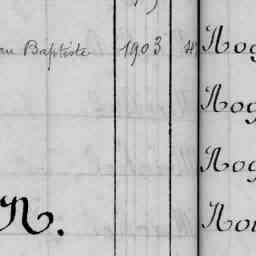 Baptiste 1903 4 Nog
Nog
Nog
N. Nou